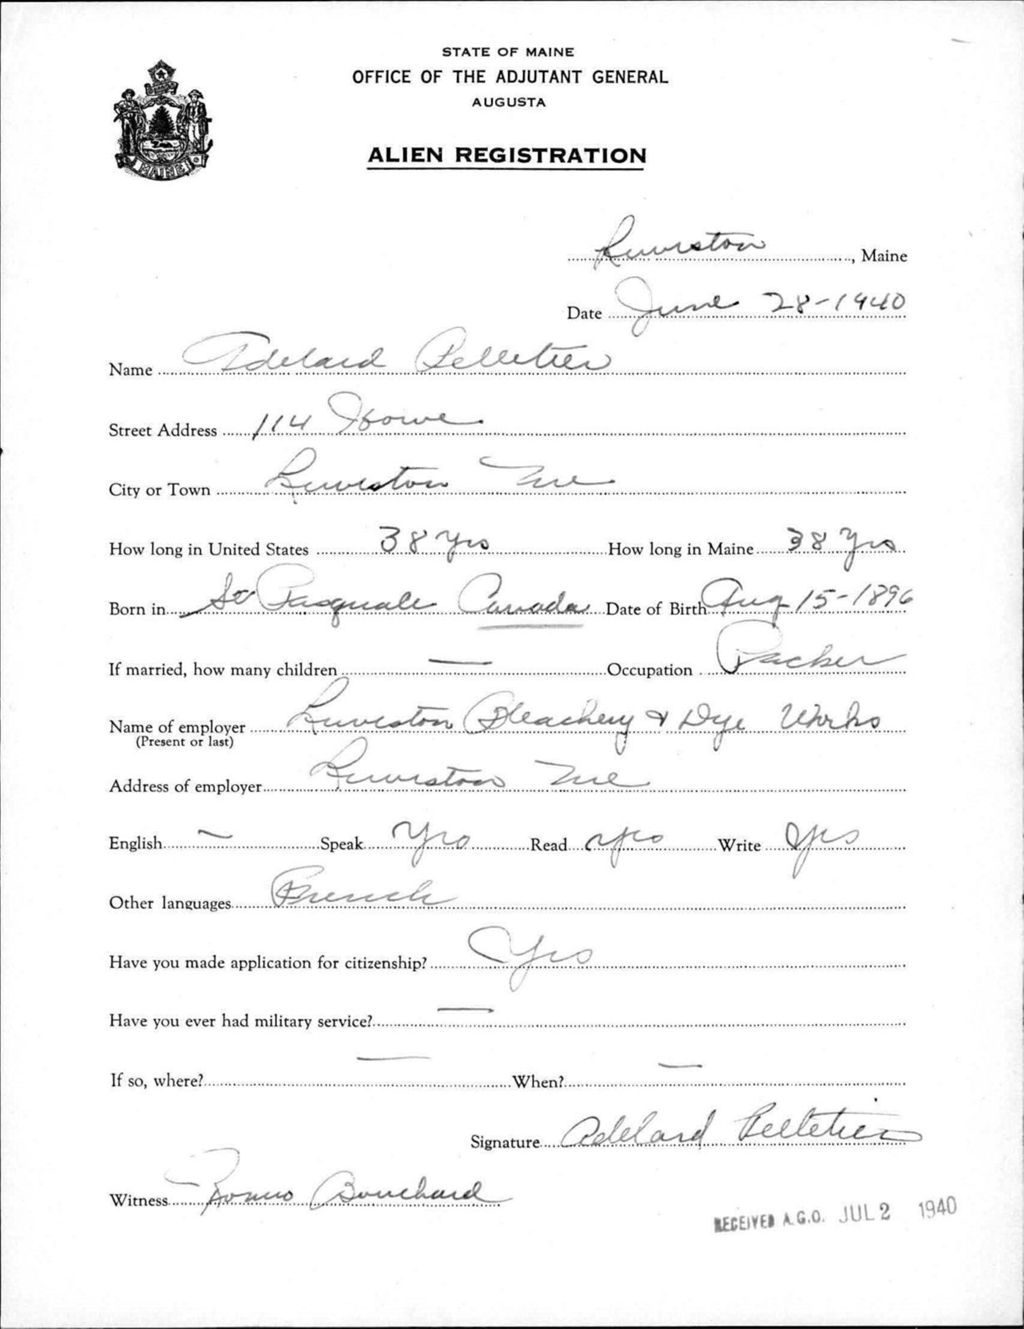 STATE OF MAINE
OFFICE OF THE ADJUTANT GENERAL
AUGUSTA
ALIEN REGISTRATION
MAINE
Lewiston, Maine
Date June 28-1940
Name Adelard Pelletier
Street Address 114 Howe
City or Town Lewiston Me
How long in United States 38 Yrs How long in Maine 38 Yrs
Born in St Pasquale Canada Date of Birth Aug 15-1896
If married, how many children — Occupation Packer
Name of employer Lewiston Bleachery & Dye Works
(Present or last)
Address of employer Lewiston Me
English — Speak Yes Read Yes Write Yes
Other languages French
Have you made application for citizenship? Yes
Have you ever had military service? —
If so, where? — When? —
Signature Adelard Pelletier
Witness Bouchard
RECEIVED A.G.O. JUL 2 1940